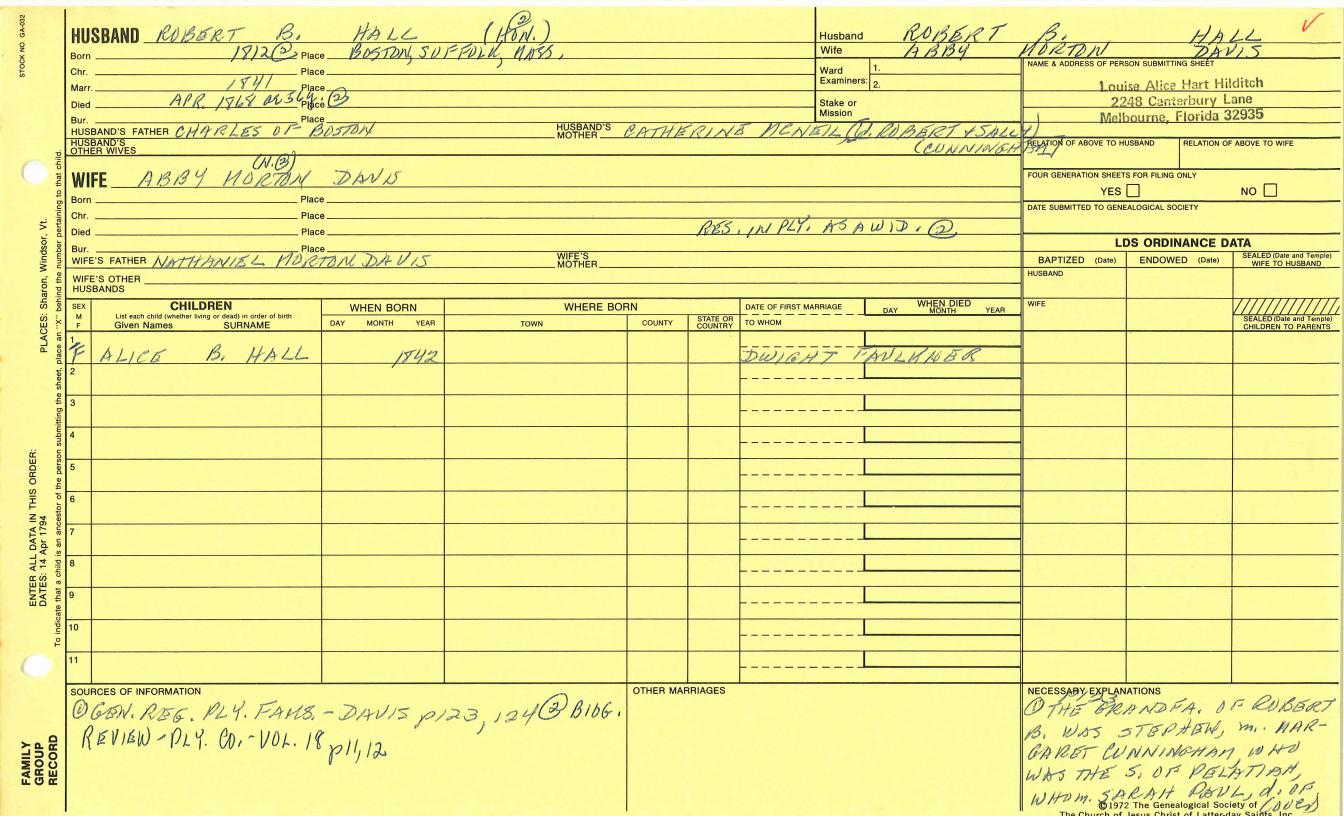 STOCK NO. GA-032
PLACES: Sharon, Windsor, Vt.
ENTER ALL DATA IN THIS ORDER:
DATES: 14 Apr 1794
To indicate that a child is an ancestor of the person submitting the sheet, place an "X" behind the number pertaining to that child.
FAMILY GROUP RECORD
HUSBAND ROBERT B. HALL (HON.) ②
Born 1812 ② Place BOSTON, SUFFOLK, MASS.
Chr. Place
Marr. 1841 Place
Died APR. 1868 AE 56y. Place ②
Bur. Place
HUSBAND'S FATHER CHARLES OF BOSTON HUSBAND'S MOTHER CATHERINE MCNEIL (d. ROBERT & SALLY)
HUSBAND'S OTHER WIVES (CUNNINGHAM)
(N.③)
WIFE ABBY MORTON DAVIS
Born Place
Chr. Place
Died Place RES. IN PLY. AS A WID. ②
Bur. Place
WIFE'S FATHER NATHANIEL MORTON DAVIS WIFE'S MOTHER
WIFE'S OTHER HUSBANDS
Husband ROBERT B. HALL
Wife ABBY MORTON DAVIS
Ward Examiners: 1.
2.
Stake or Mission
NAME & ADDRESS OF PERSON SUBMITTING SHEET
Louise Alice Hart Hilditch
2248 Canterbury Lane
Melbourne, Florida 32935
RELATION OF ABOVE TO HUSBAND RELATION OF ABOVE TO WIFE
FOUR GENERATION SHEETS FOR FILING ONLY
YES NO
DATE SUBMITTED TO GENEALOGICAL SOCIETY
LDS ORDINANCE DATA
BAPTIZED (Date) ENDOWED (Date) SEALED (Date and Temple) WIFE TO HUSBAND
HUSBAND
WIFE
SEALED (Date and Temple) CHILDREN TO PARENTS
SEX M F CHILDREN WHEN BORN WHERE BORN DATE OF FIRST MARRIAGE WHEN DIED
List each child (whether living or dead) in order of birth
Given Names SURNAME DAY MONTH YEAR TOWN COUNTY STATE OR COUNTRY TO WHOM DAY MONTH YEAR
1 F ALICE B. HALL 1842 DWIGHT FAULKNER
2
3
4
5
6
7
8
9
10
11
SOURCES OF INFORMATION
① GEN. REG. PLY. FAMS. - DAVIS p123, 124 ② BIOG.
REVIEW - PLY. CO. - VOL. 18 p11, 12
OTHER MARRIAGES
NECESSARY EXPLANATIONS
① THE GRANDFA. OF ROBERT
B. WAS STEPHEN, m. MAR-
GARET CUNNINGHAM, WHO
WAS THE S. OF PELATIAH,
WHO m. SARAH PAUL, d. OF
(OVER)
©1972 The Genealogical Society of
The Church of Jesus Christ of Latter-day Saints, Inc.